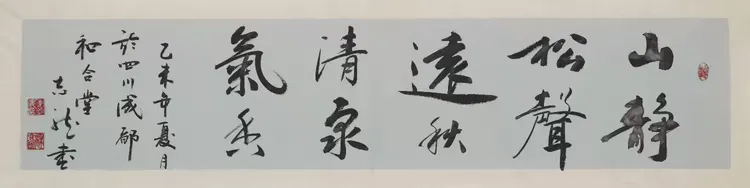 山静
松聲
遠秋
清泉
氣香
乙未年夏月
於四川成都
和合堂
志
書